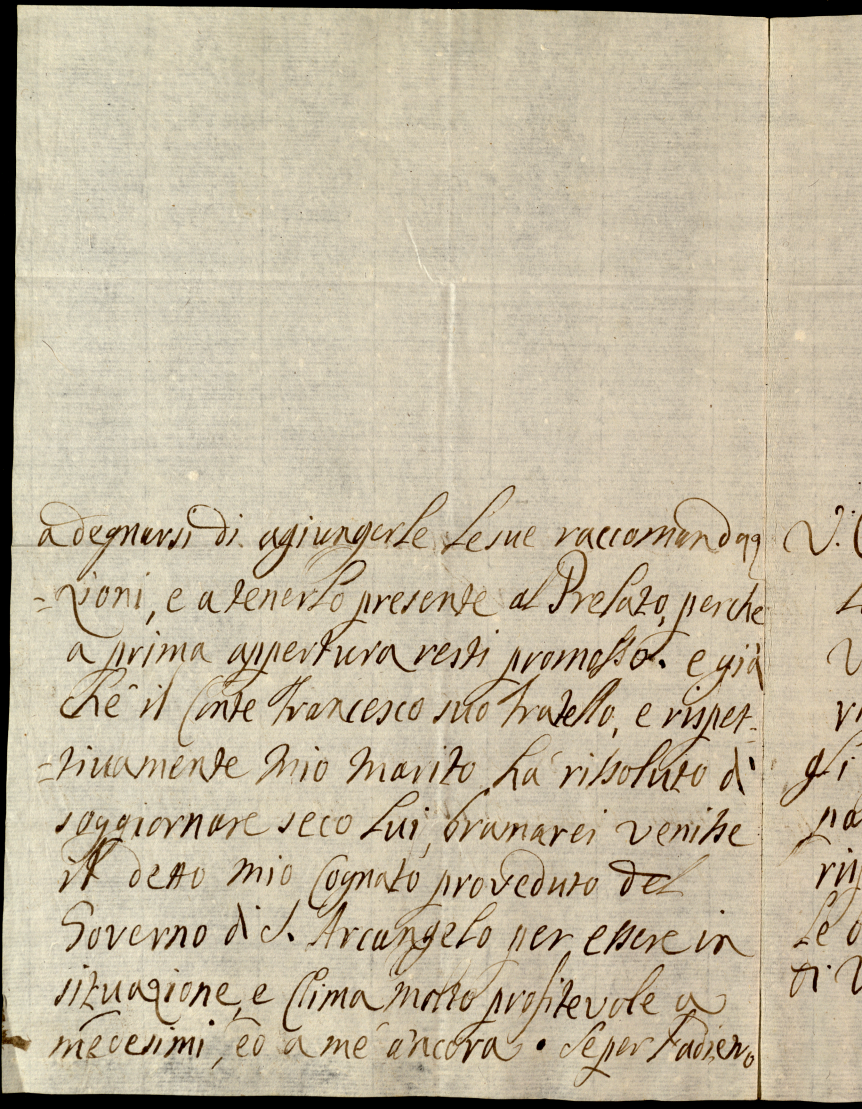 a degnarsi di agiungerle le sue raccomanda
=zioni, e a tenerlo presente al Prelato, perche
a prima appertura resti promosso. e già
che il Conte Francesco suo fratello, e rispet=
=tivamente mio marito hà rissoluto di
soggiornare seco lui, bramarei venisse
il detto mio Cognato proveduto del
Governo di S. Arcangelo per essere in
situazione, e Clima molto profitevole a
medesimi, ed a me ancora. Se per